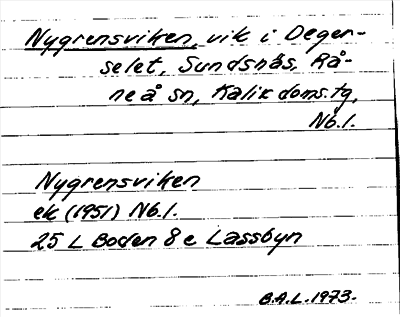 Nygrensviken, vik i Deger-
selet, Sundsnäs, Rå-
neå sn, Kalix doms.tg,
Nb.l.
Nygrensviken
ek (1951) Nb.l.
25 L Boden 8 e Lassbyn
B.A.L. 1973.